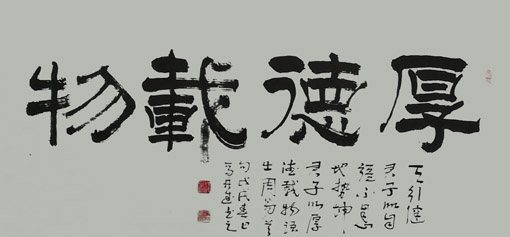 厚德載物
天行健
君子以自
強不息
地勢坤
君子以厚
德載物語
出周易
句戊戌春日